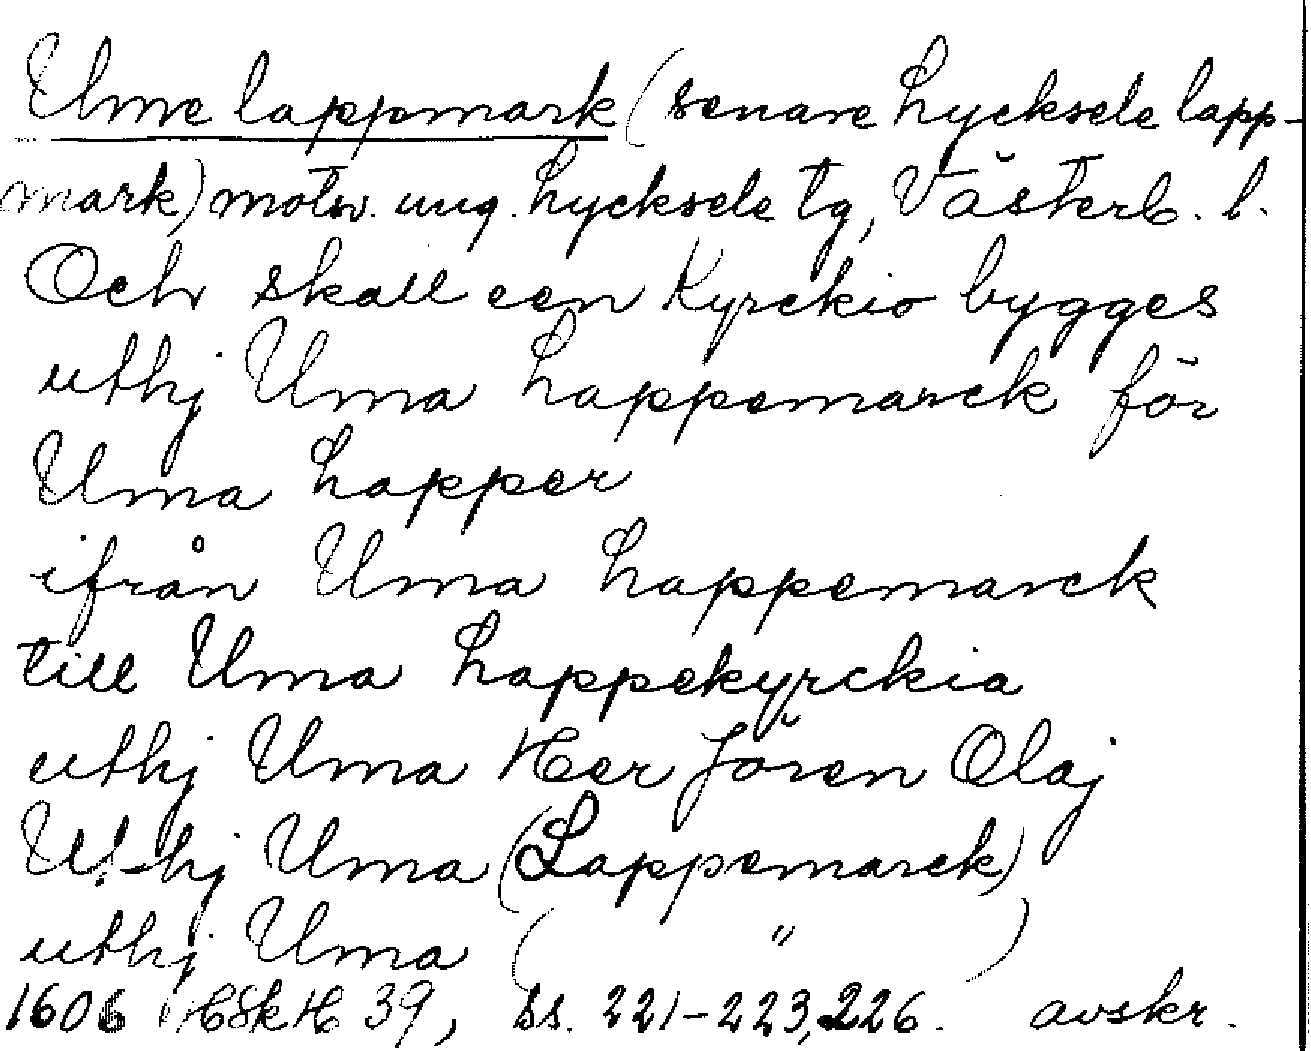 Ume lappmark (senare Lycksele lapp-
mark) motsv. ung. Lycksele tg, Västerb. l.
Och skall een Kyrckio bygges
uthj Uma Lappemarck för
Uma Lapper
ifrån Uma Lappemarck
till Uma Lappekyrckia
uthj Uma Her Jören Olaj
Uthj Uma (Lappemarck)
uthj Uma ( " )
1606 HSkH 39, ss. 221-223, 226. avskr.